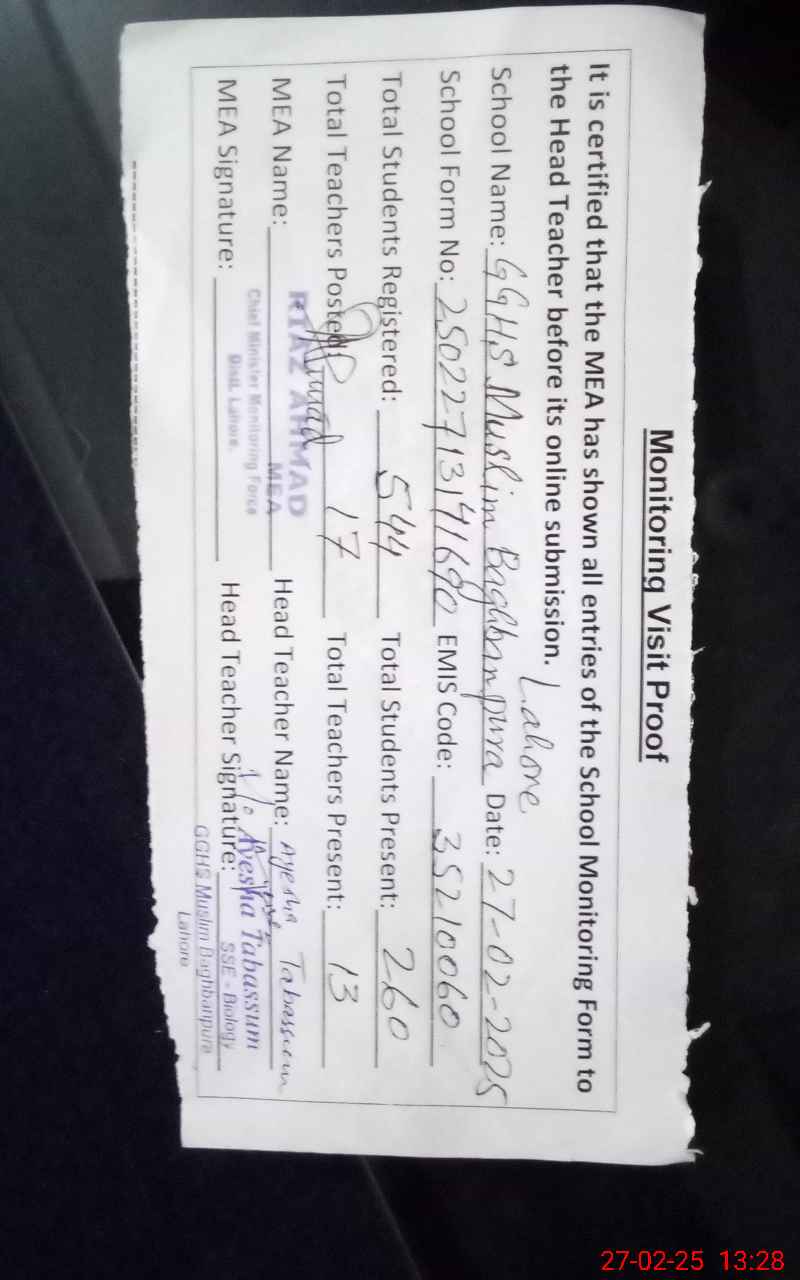 Monitoring Visit Proof
It is certified that the MEA has shown all entries of the School Monitoring Form to
the Head Teacher before its online submission.
Lahore
School Name: GGHS Muslim Baghbanpura Date: 27-02-2025
School Form No: 25022713141690 EMIS Code: 35210060
Total Students Registered: 544 Total Students Present: 260
Total Teachers Posted: 17 Total Teachers Present: 13
MEA Name: Head Teacher Name: Ayesha Tabassum
RIAZ AHMAD
MEA
Chief Minister Monitoring Force
Distt. Lahore.
MEA Signature: Head Teacher Signature:
Ayesha Tabassum
SSE - Biology
GGHS Muslim Baghbanpura
Lahore
27-02-25 13:28